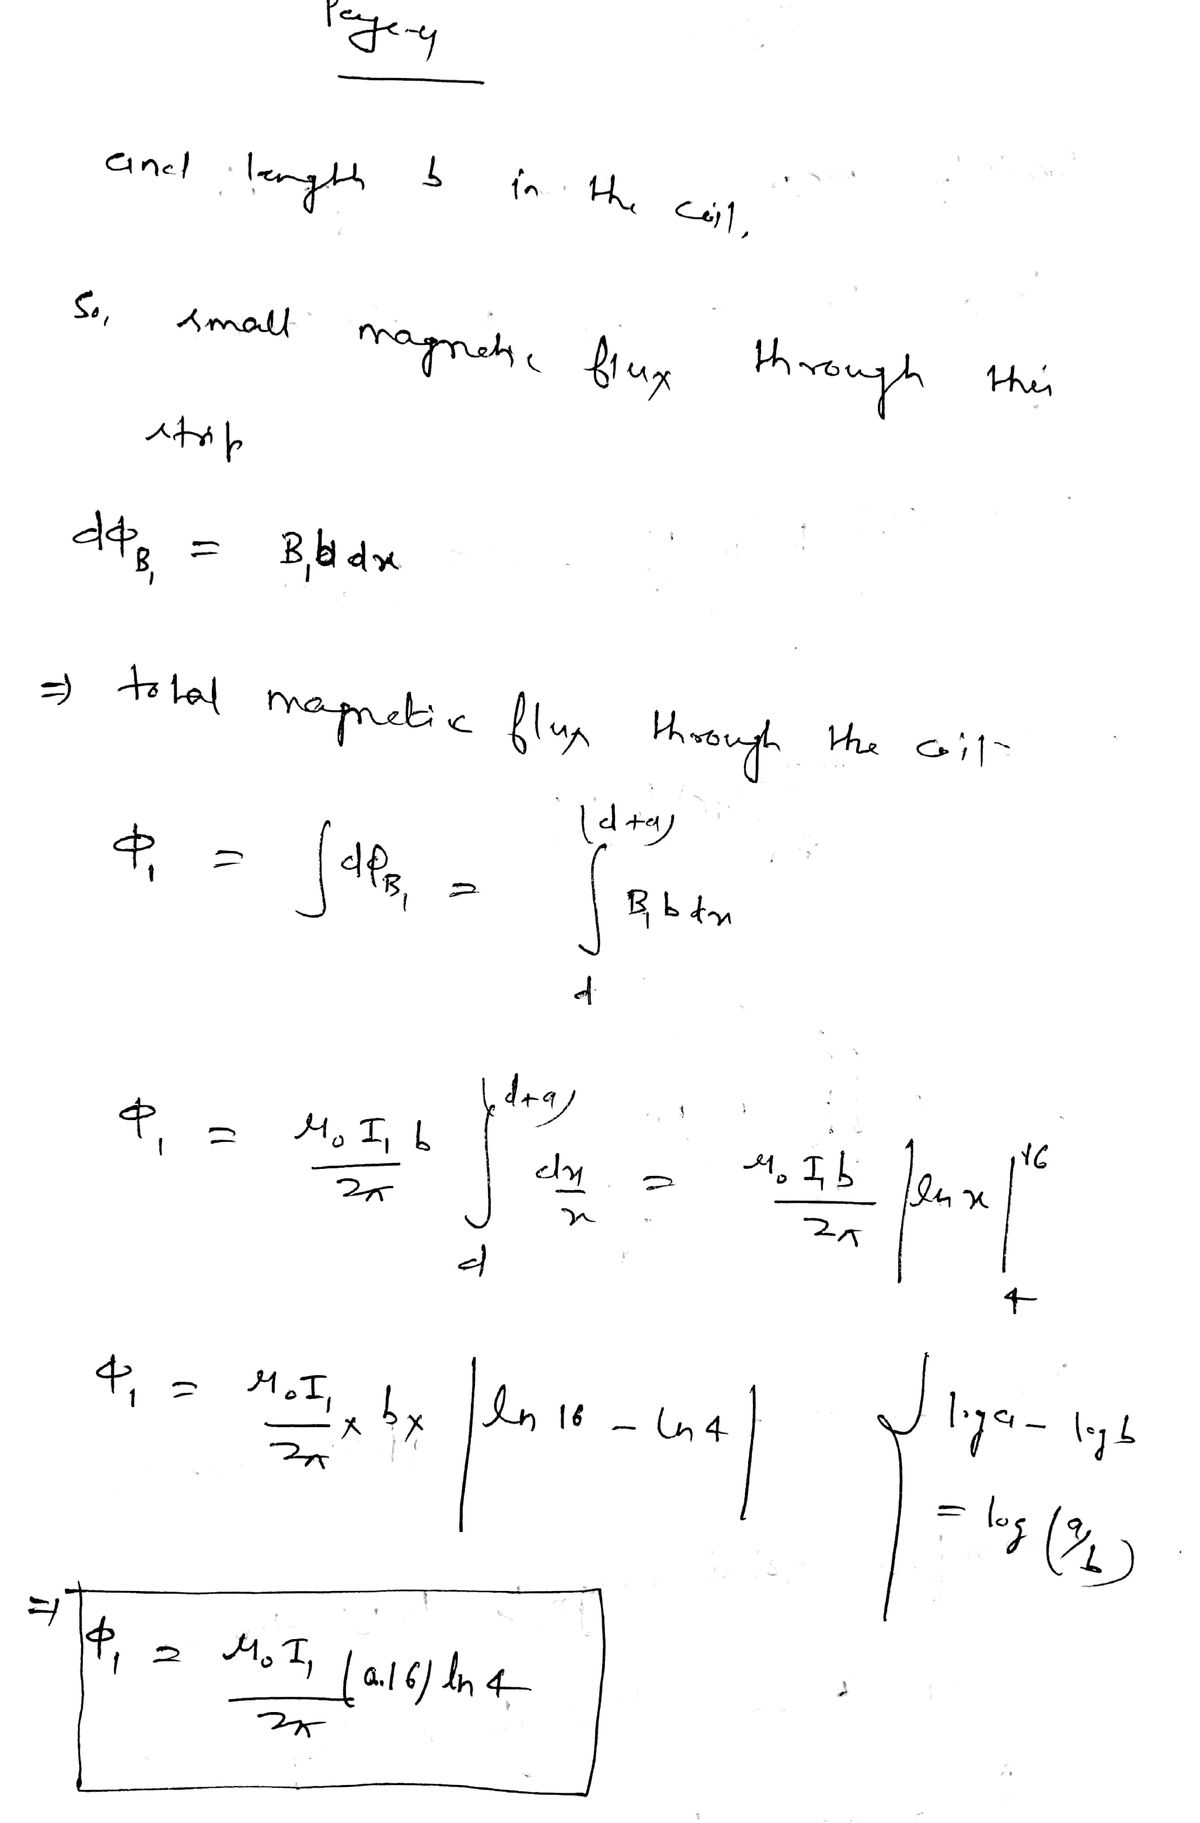 Page-4
and length b in the coil,
So, small magnetic flux through this
strip
dΦ_B₁ = B₁ b dx
⇒ total magnetic flux through the coil-
Φ₁ = ∫ dΦ_B₁ = ∫_d^(d+a) B₁ b dx
Φ₁ = μ₀ I₁ b / 2π ∫_d^(d+a) dx/x = μ₀ I₁ b / 2π |ln x|_4^16
Φ₁ = μ₀ I₁ / 2π × b × |ln 16 - ln 4|
log a - log b
= log (a/b)
⇒ Φ₁ = μ₀ I₁ / 2π (0.16) ln 4